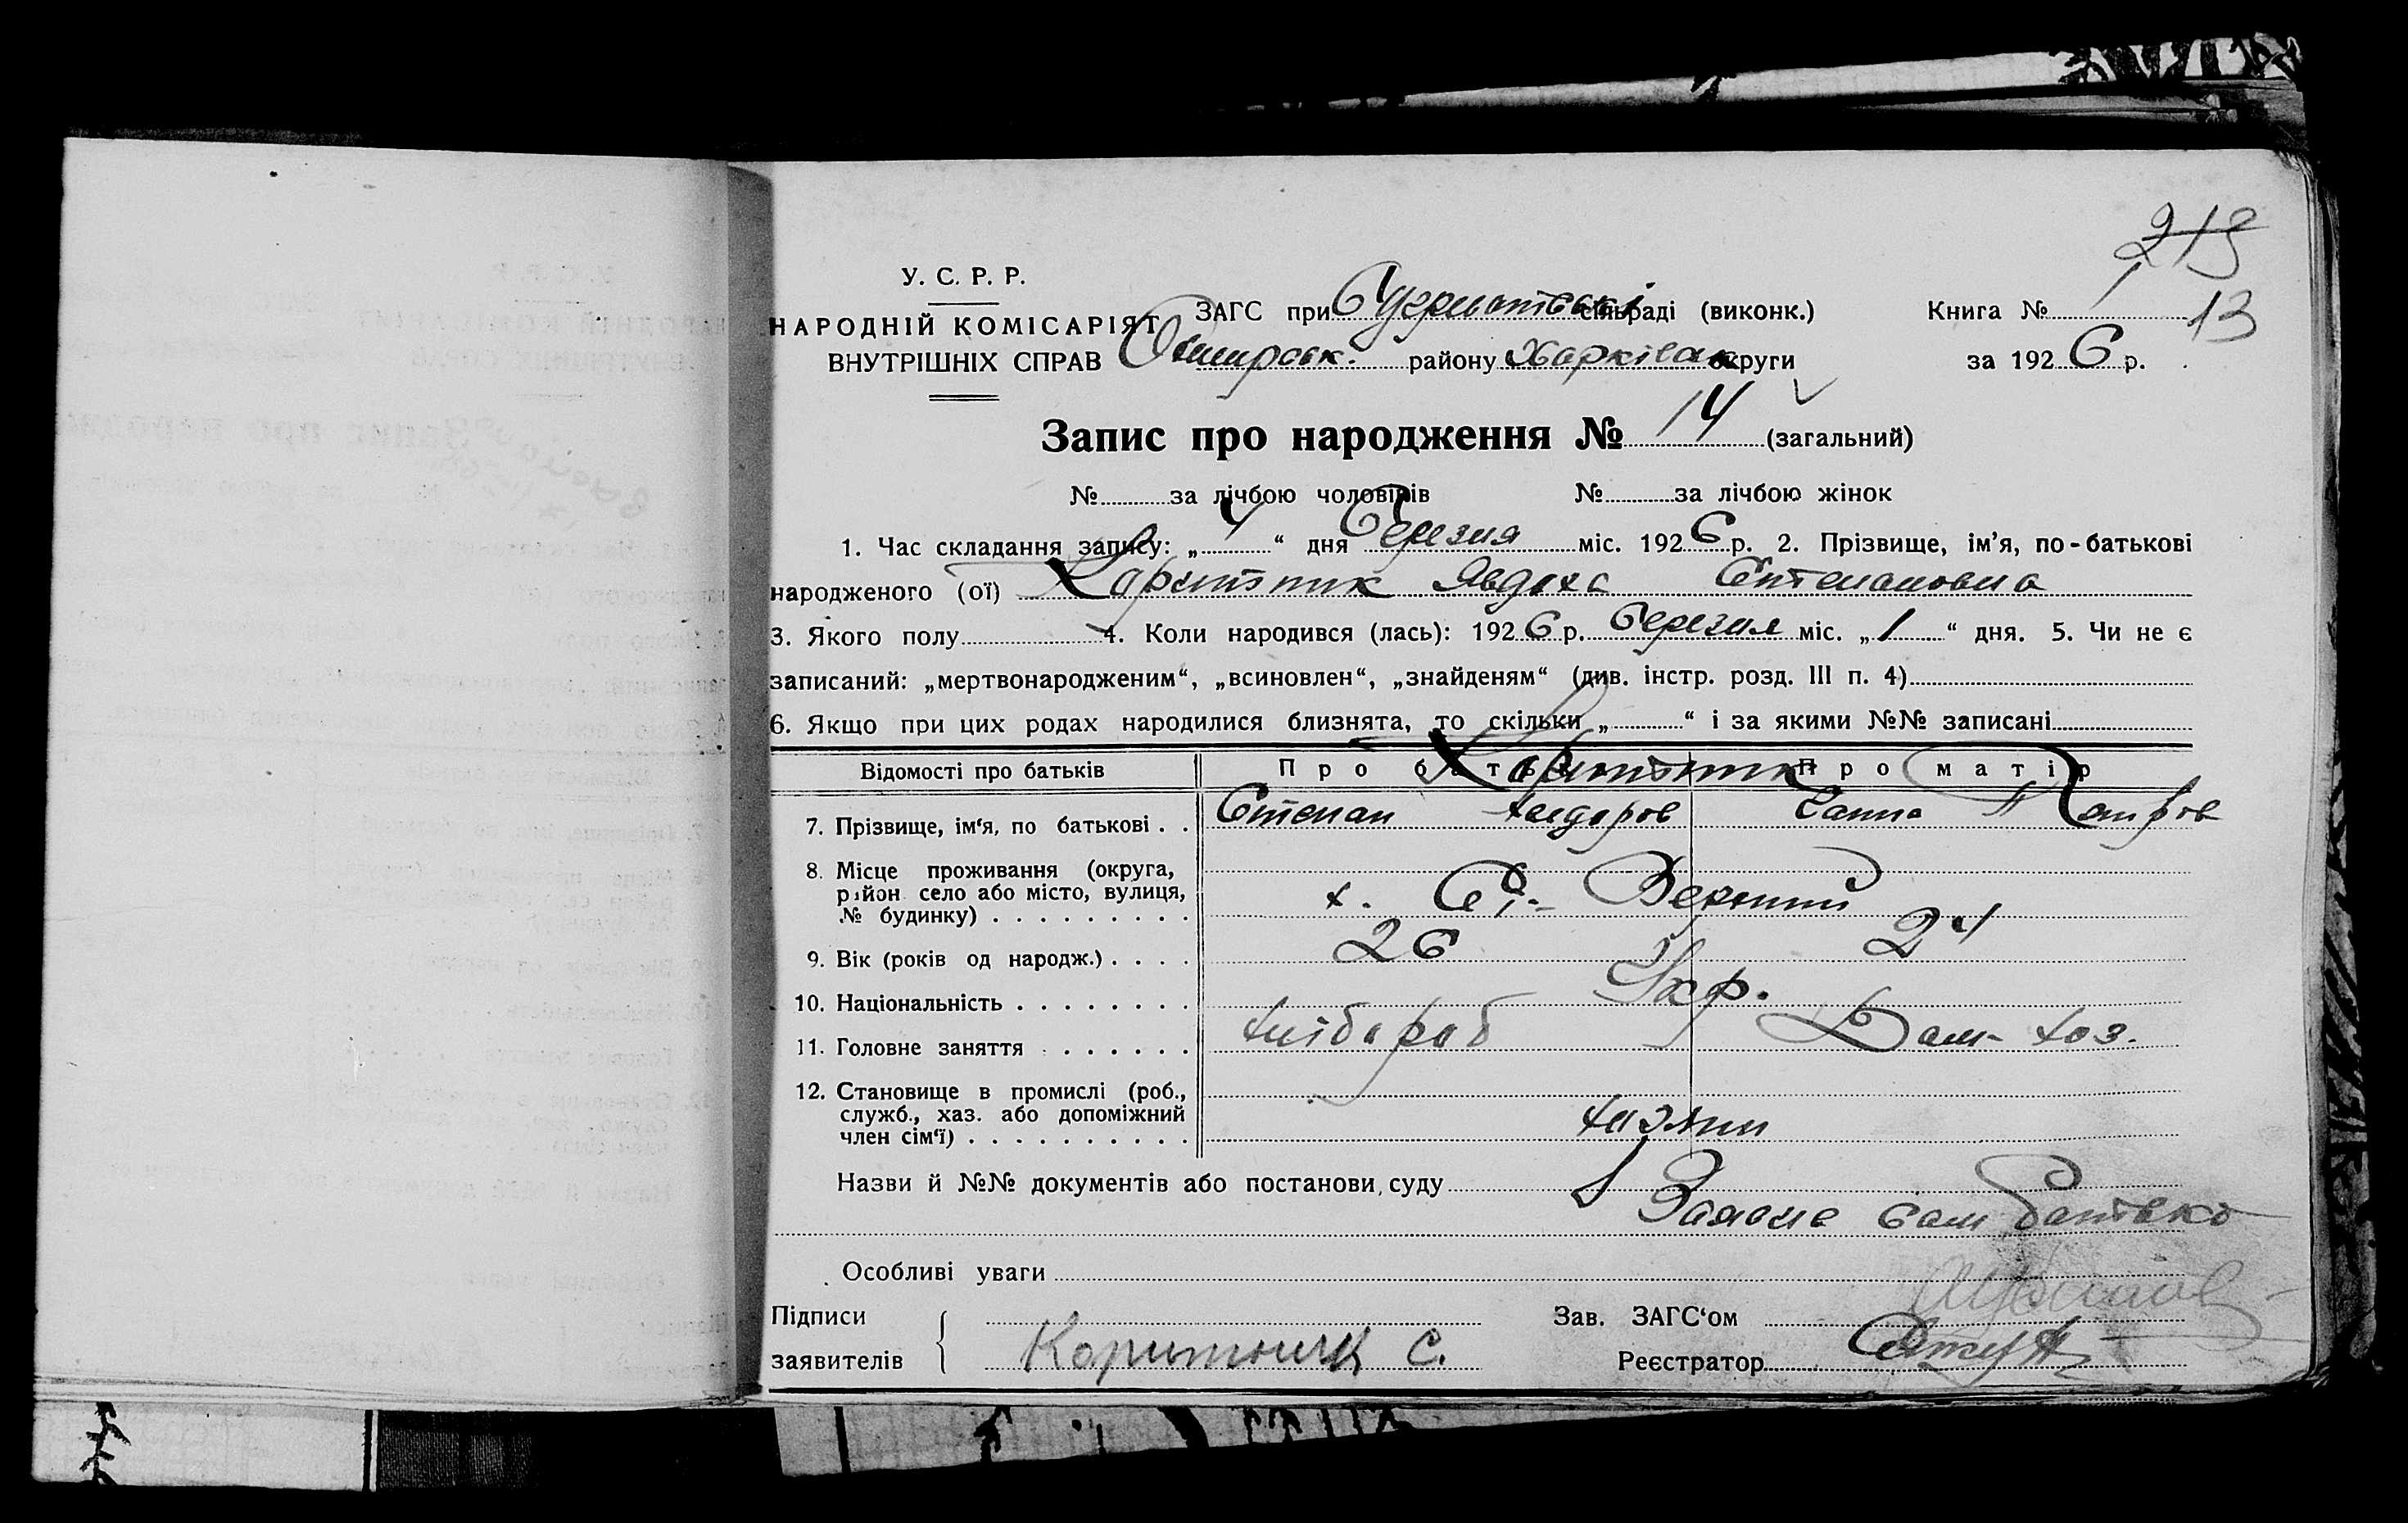 213
13
У. С. Р. Р.
НАРОДНІЙ КОМІСАРІЯТ
ВНУТРІШНІХ СПРАВ
ЗАГС при сільраді (виконк.) Книга № 1
району Харківськ округи за 1926 р.
Запис про народження № 14 (загальний)
№ за лічбою чоловіків № за лічбою жінок
1. Час складання запису: „4“ дня Березня міс. 1926 р. 2. Прізвище, ім’я, по-батькові
народженого (ої) Каритник Явдоха Степановна
3. Якого полу 4. Коли народився (лась): 1926 р. Березня міс. „1“ дня. 5. Чи не є
записаний: „мертвонародженим“, „всиновлен“, „знайденям“ (див. інстр. розд. III п. 4)
6. Якщо при цих родах народилися близнята, то скільки „ “ і за якими №№ записані
Відомості про батьків Про батька Про матір
Каритник
7. Прізвище, ім‘я, по батькові . . Степан Ганна
8. Місце проживання (округа,
район село або місто, вулиця,
№ будинку) . . . . . . . . . х.
9. Вік (років од народж.) . . . . 26 24
10. Національність . . . . . . . . Укр.
11. Головне заняття . . . . . . . хлібороб Дом- хоз.
12. Становище в промислі (роб.,
служб., хаз. або допоміжний
член сім‘ї) . . . . . . . . . . хазяин
Назви й №№ документів або постанови суду
Заявив сам батько
Особливі уваги
Підписи Зав. ЗАГС‘ом
заявителів Коритник С. Реєстратор